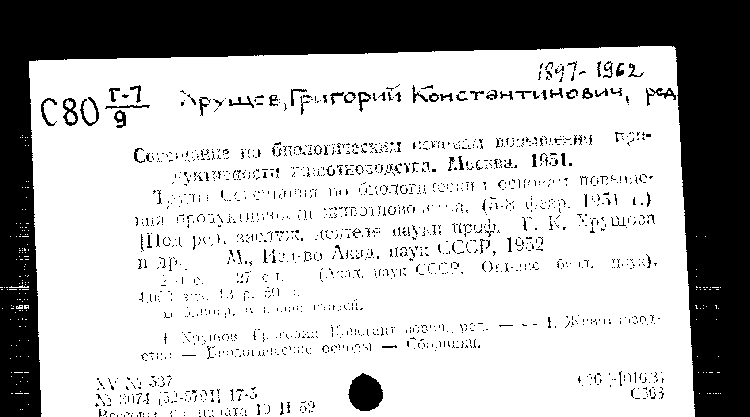 1897-1962
С80 Г-7/9 Хрущев, Григорий Константинович, ред
Совещание по биологическим основам повышения про-
дуктивности животноводства. Москва. 1951.
Труды Совещания по биологическим основам повыше-
ния продуктивности животноводства. (5-8 февр. 1951 г.)
[Под ред. заслуж. деятеля науки проф. Г. К. Хрущова
и др. М., Изд-во Акад. наук СССР, 1952
27 см. (Акад. наук СССР. Отд-ние биол. наук).
экз. 13 р. 80 к.
Библиогр. в конце статей.
1. Хрущов, Григорий Константинович, ред. — 1. Животновод-
ство — Биологические основы — Сборники.
XV № 537
№ 3074 [52-5791] 17-5
печата 19 II 52
С363